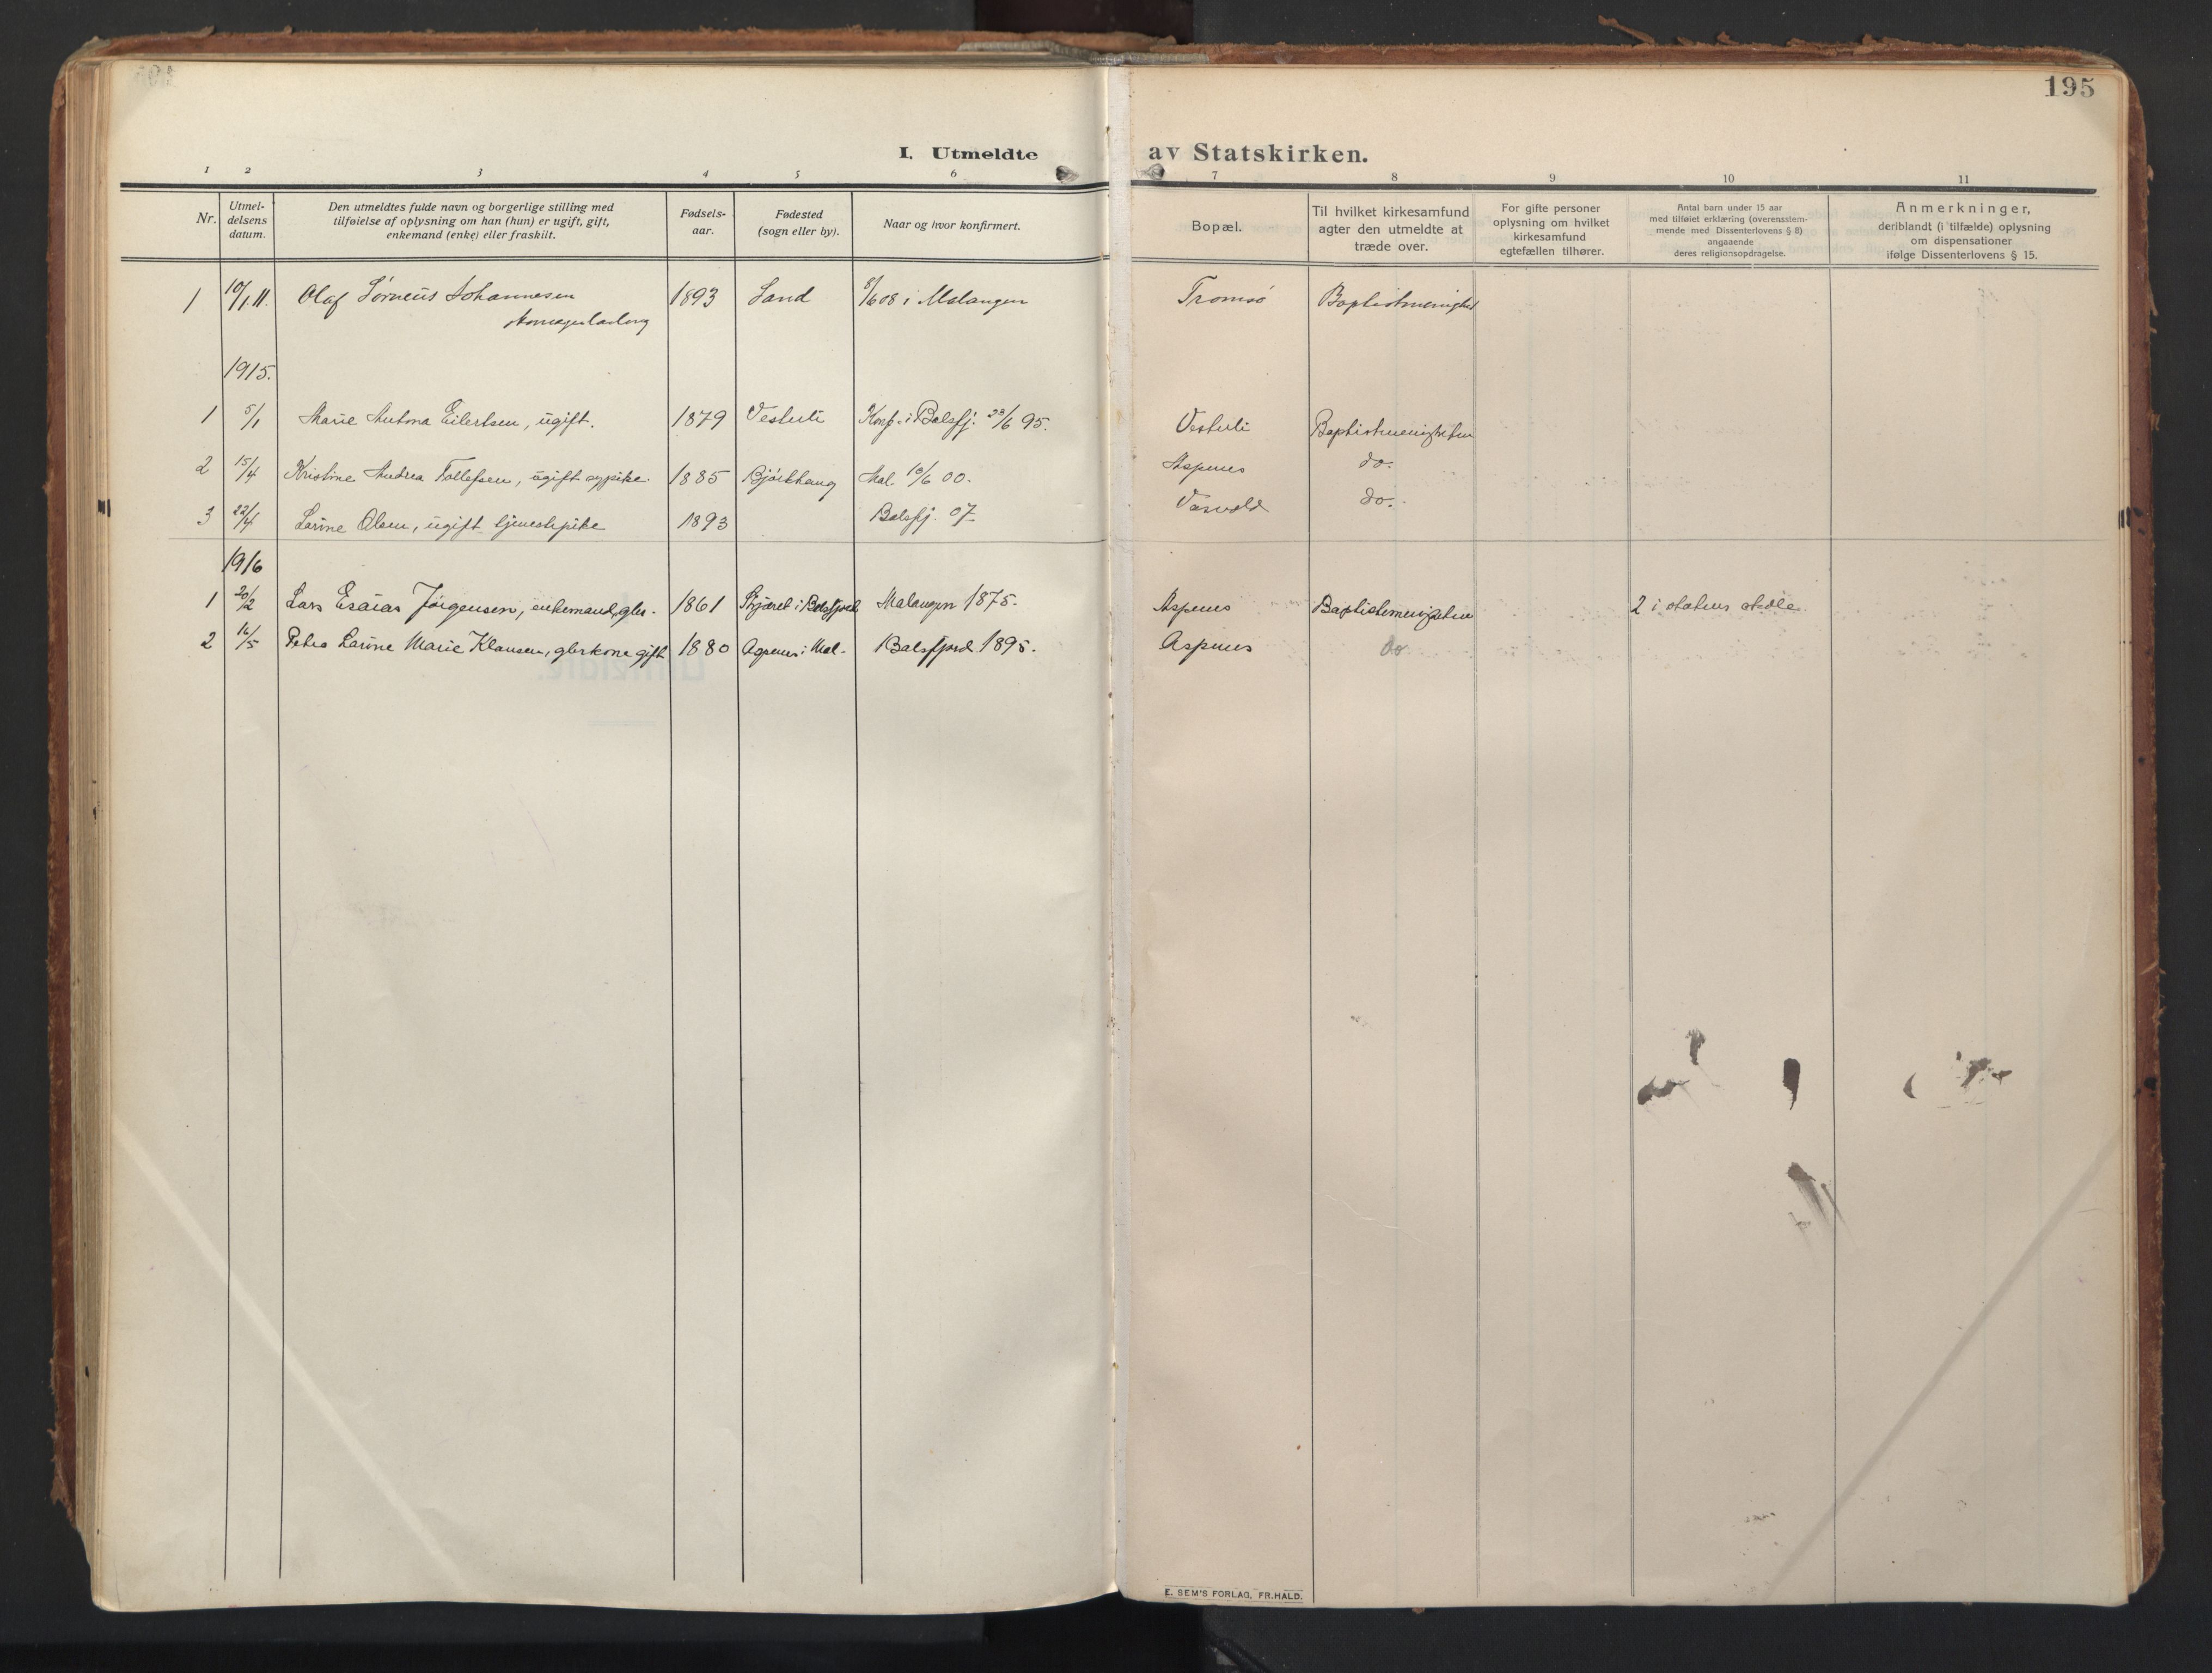 195
I. Utmeldte av Statskirken.
1 2 3 4 5 6 7 8 9 10 11
Nr.
Utmel-
delsens
datum.
Den utmeldtes fulde navn og borgerlige stilling med
tilføielse af oplysning om han (hun) er ugift, gift,
enkemand (enke) eller fraskilt.
Fødsels-
aar.
Fødested
(sogn eller by).
Naar og hvor konfirmert.
Bopæl.
Til hvilket kirkesamfund
agter den utmeldte at
træde over.
For gifte personer
oplysning om hvilket
kirkesamfund
egtefællen tilhører.
Antal barn under 15 aar
med tilføiet erklæring (overensstem-
mende med Dissenterlovens § 8)
angaaende
deres religionsopdragelse.
Anmerkninger,
deriblandt (i tilfælde) oplysning
om dispensationer
ifølge Dissenterlovens § 15.
1 10/1.11. Olaf Johannesen 1893 Sand 8/6 08 i Malangen Tromsø Baptistmenighed
1915.
1 5/1 Marie Antona Eilertsen, ugift. 1879 Vestuli Konf. i Balsfj. 23/6 95. Vestuli Baptistmenigheten
2 15/4 Kristine Andrea Tollefsen, ugift sypike. 1885 Bjørkhaug Mal. 10/6 00. Aspenes do.
3 22/4 Larine Olsen, ugift tjenestepike 1893 Balsfj. 07 do.
1916
1 20/2 Lars Esaias Jørgensen, enkemand, gbr. 1861 i Balsfjord Malangen 1875. Aspenes Baptistmenigheten 2 i statens skole.
2 16/5 Petra Larine Marie Klausen, gbrkone gift 1880 Aspenes i Mal. Balsfjord 1895. Aspenes do
E. SEM'S FORLAG, FR.HALD.